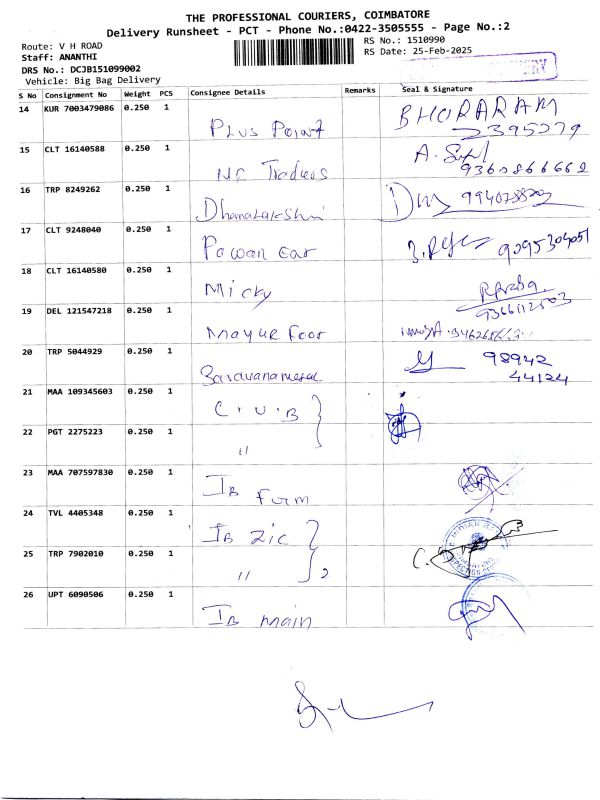 THE PROFESSIONAL COURIERS, COIMBATORE
Delivery Runsheet - PCT - Phone No.:0422-3505555 - Page No.:2
Route: V H ROAD
RS No.: 1510990
Staff: ANANTHI
RS Date: 25-Feb-2025
DRS No.: DCJB151099002
Vehicle: Big Bag Delivery
S No Consignment No Weight PCS Consignee Details Remarks Seal & Signature
14 KUR 7003479086 0.250 1 Plus Point BHORARAM
15 CLT 16140588 0.250 1 Traders
16 TRP 8249262 0.250 1
17 CLT 9248040 0.250 1 Pawan Ear 9095304051
18 CLT 16140580 0.250 1 Micky
9366112503
19 DEL 121547218 0.250 1 Mayur Foor
20 TRP 5044929 0.250 1 98942
44124
21 MAA 109345603 0.250 1 C.U.B
22 PGT 2275223 0.250 1 "
23 MAA 707597830 0.250 1 IB Furm
24 TVL 4405348 0.250 1 IB zic
25 TRP 7902010 0.250 1 " 2
26 UPT 6090506 0.250 1 IB main